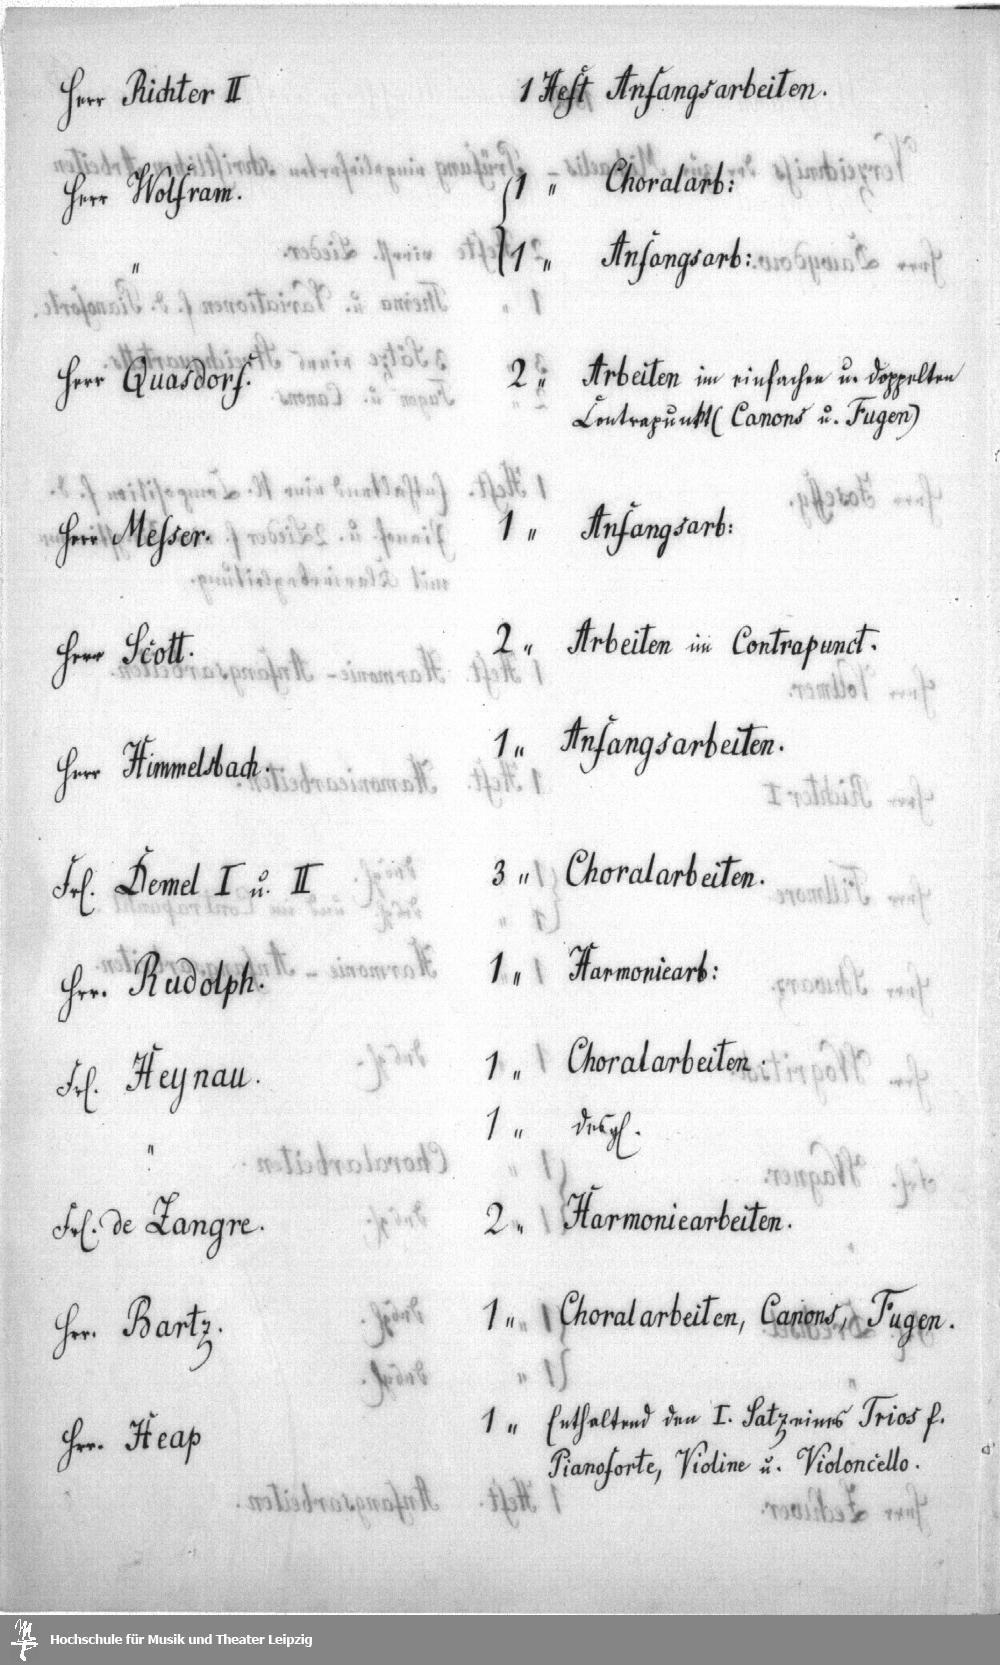 Herr Richter II 1 Heft Anfangsarbeiten.
Herr Wolfram. 1 " Choralarb:
" 1 " Anfangsarb:
Herr Quasdorf. 2 " Arbeiten im einfachen u. doppelten
Contrapunkt (Canons u. Fugen)
Herr Messer. 1 " Anfangsarb:
Herr Scott. 2 " Arbeiten im Contrapunct.
1 " Anfangsarbeiten.
Herr Himmelsbach.
Frl. Demel I u. II 3 " Choralarbeiten.
Hrr. Rudolph. 1 " Harmoniearb:
Frl. Heynau. 1 " Choralarbeiten.
" 1 " desgl.
Frl. de Zangre. 2 " Harmoniearbeiten.
Hrr. Bartz. 1 " Choralarbeiten, Canons, Fugen.
Hrr. Heap 1 " Enthaltend den I. Satz eines Trios f.
Pianoforte, Violine u. Violoncello.
Hochschule für Musik und Theater Leipzig